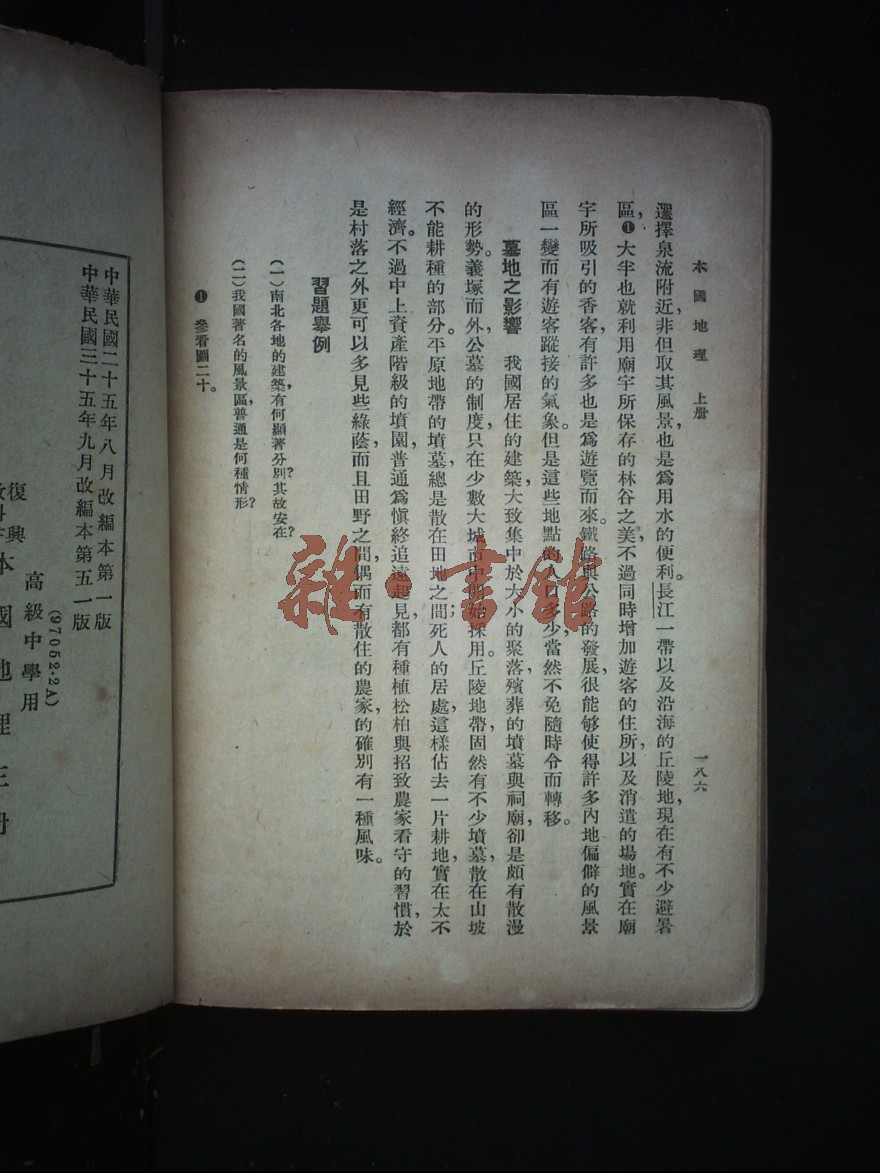 本國地理 上册
一八六
選擇泉流附近，非但取其風景，也是爲用水的便利。長江一帶以及沿海的丘陵地，現在有不少避暑
區，❶大半也就利用廟宇所保存的林谷之美，不過同時增加遊客的住所，以及消遣的場地。實在廟
宇所吸引的香客，有許多也是爲遊覽而來。鐵路與公路的發展，很能够使得許多內地偏僻的風景
區一變而有遊客蹤接的氣象。但是這些地點的人口多少，當然不免隨時令而轉移。
墓地之影響　我國居住的建築，大致集中於大小的聚落，殯葬的墳墓與祠廟，卻是頗有散漫
的形勢。義塚而外，公墓的制度，只在少數大城市中開始採用。丘陵地帶，固然有不少墳墓，散在山坡
不能耕種的部分。平原地帶的墳墓，總是散在田地之間；死人的居處，這樣佔去一片耕地，實在太不
經濟。不過中上資產階級的墳園，普通爲愼終追遠起見，都有種植松柏與招致農家看守的習慣，於
是村落之外更可以多見些綠蔭，而且田野之間，偶而有散住的農家，的確別有一種風味。
習題舉例
（一）南北各地的建築，有何顯著分別？其故安在？
（二）我國著名的風景區，普通是何種情形？
❶ 參看圖二十。
中華民國二十五年八月改編本第一版
中華民國三十五年九月改編本第五一版
(97052·2A)
高級中學用
復興
本國地理上册
雜·書館